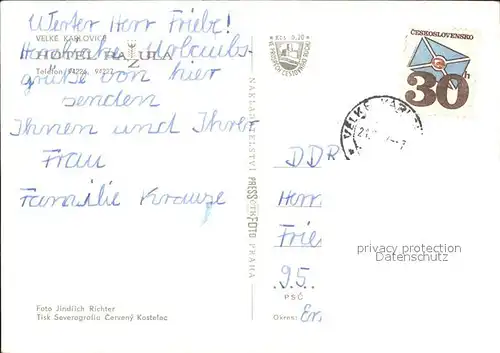 Werter Herr Friebe!
VELKÉ KARLOVICE
HOTEL RAZULA
Herzliche Urlaubs-
Telefon: 94224, 94227
grüße von hier
senden
Ihnen und Ihrer
Frau
Familie Krauze
Foto Jindřich Richter
Tisk Severografia Červený Kostelec
NAKLADATELSTVÍ PRESSFOTO PRAHA
Kčs 0,30
ČESKOSLOVENSKO
30h
VELKÉ KARLOV
DDR
Herr
Frie
95
PSČ
Okres: Er
privacy protection
Datenschutz